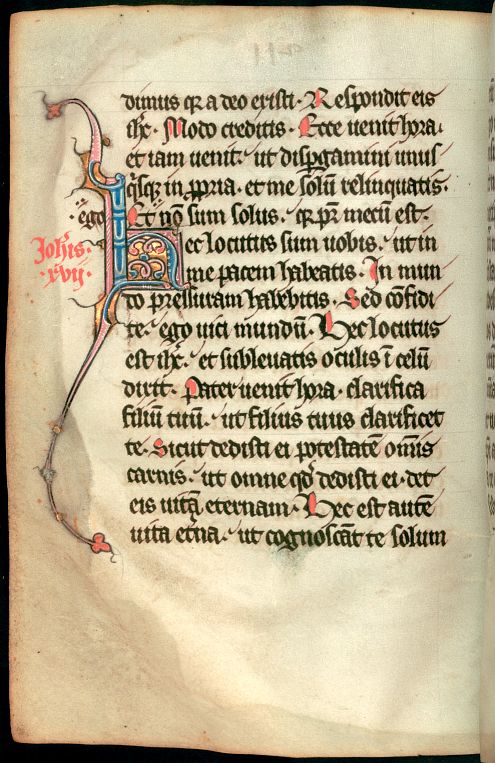 dimus q̄ a deo existi. Respondit eis
ihc̄. Modo creditis. Ecce uenit hora
et iam uenit. ut disꝑgamini unus
q̇sq̨ in ꝓpria. et me solū relinquatis.
ego Et nō sum solus. q̄ pr̄ mecū est.
Joh̄is. xvij.
Hec locutus sum uobis. ut in
me pacem habeatis. In mun
do p̄ssuram habebitis. Sed cōfidi
te. ego uici mundū. Hec locutus
est ihc̄. et subleuatis oculis ī celū
dixit. Pater uenit hora. clarifica
filiū tuū. ut filius tuus clarificet
te. Sicut dedisti ei potestatē om̄is
carnis. ut omne qd̄ dedisti ei. det
eis uitā eternam. Hec est autē
uita et̄na. ut cognoscāt te solum